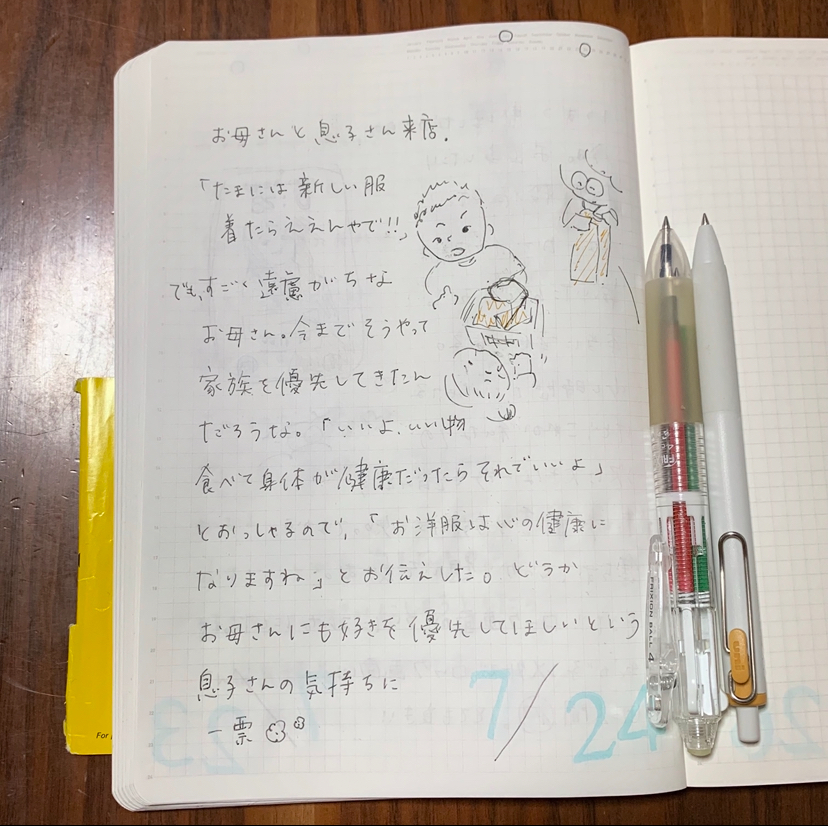 お母さんと息子さん来店.
「たまには新しい服
着たらええんやで!!」
でも、すごく遠慮がちな
お母さん。今までそうやって
家族を優先してきたん
だろうな。「いいよ、いい物
食べて身体が健康だったらそれでいいよ」
とおっしゃるので、「お洋服は心の健康に
なりますね」とお伝えした。どうか
お母さんにも好きを優先してほしいという
息子さんの気持ちに
一票
7/24
FRIXION BALL 4
For
23